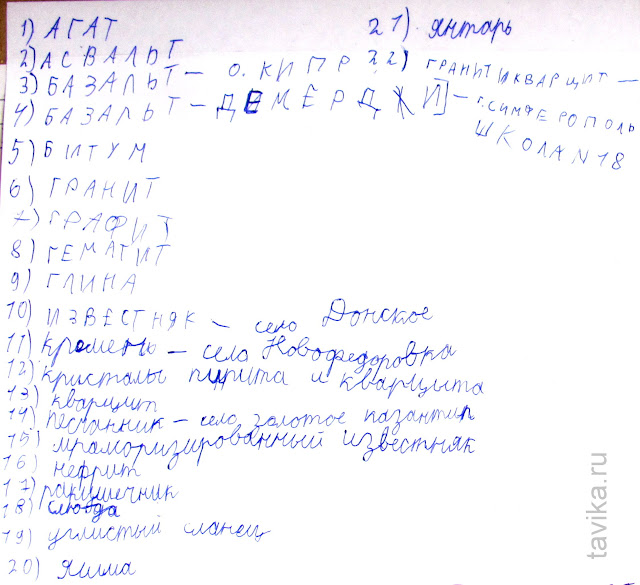 1) АГАТ
2) АСВАЛЬТ
3) БАЗАЛЬТ – О. КИПР
4) БАЗАЛЬТ – ДЕМЕРДЖИ
5) БИТУМ
6) ГРАНИТ
7) ГРАФИТ
8) ГЕМАТИТ
9) ГЛИНА
10) ИЗВЕСТНЯК – село Донское
11) кремень – село Новофедоровка
12) кристалы пирита и кварцита
13) кварцит
14) песчанник – село золотое казантип
15) мраморизированный известняк
16) нефрит
17) ракушечник
18) слюда
19) углистый сланец
20) яшма
21) янтарь
22) ГРАНИТ И КВАРЦИТ –
г. СИМФЕРОПОЛЬ
ШКОЛА N 18
tavika.ru